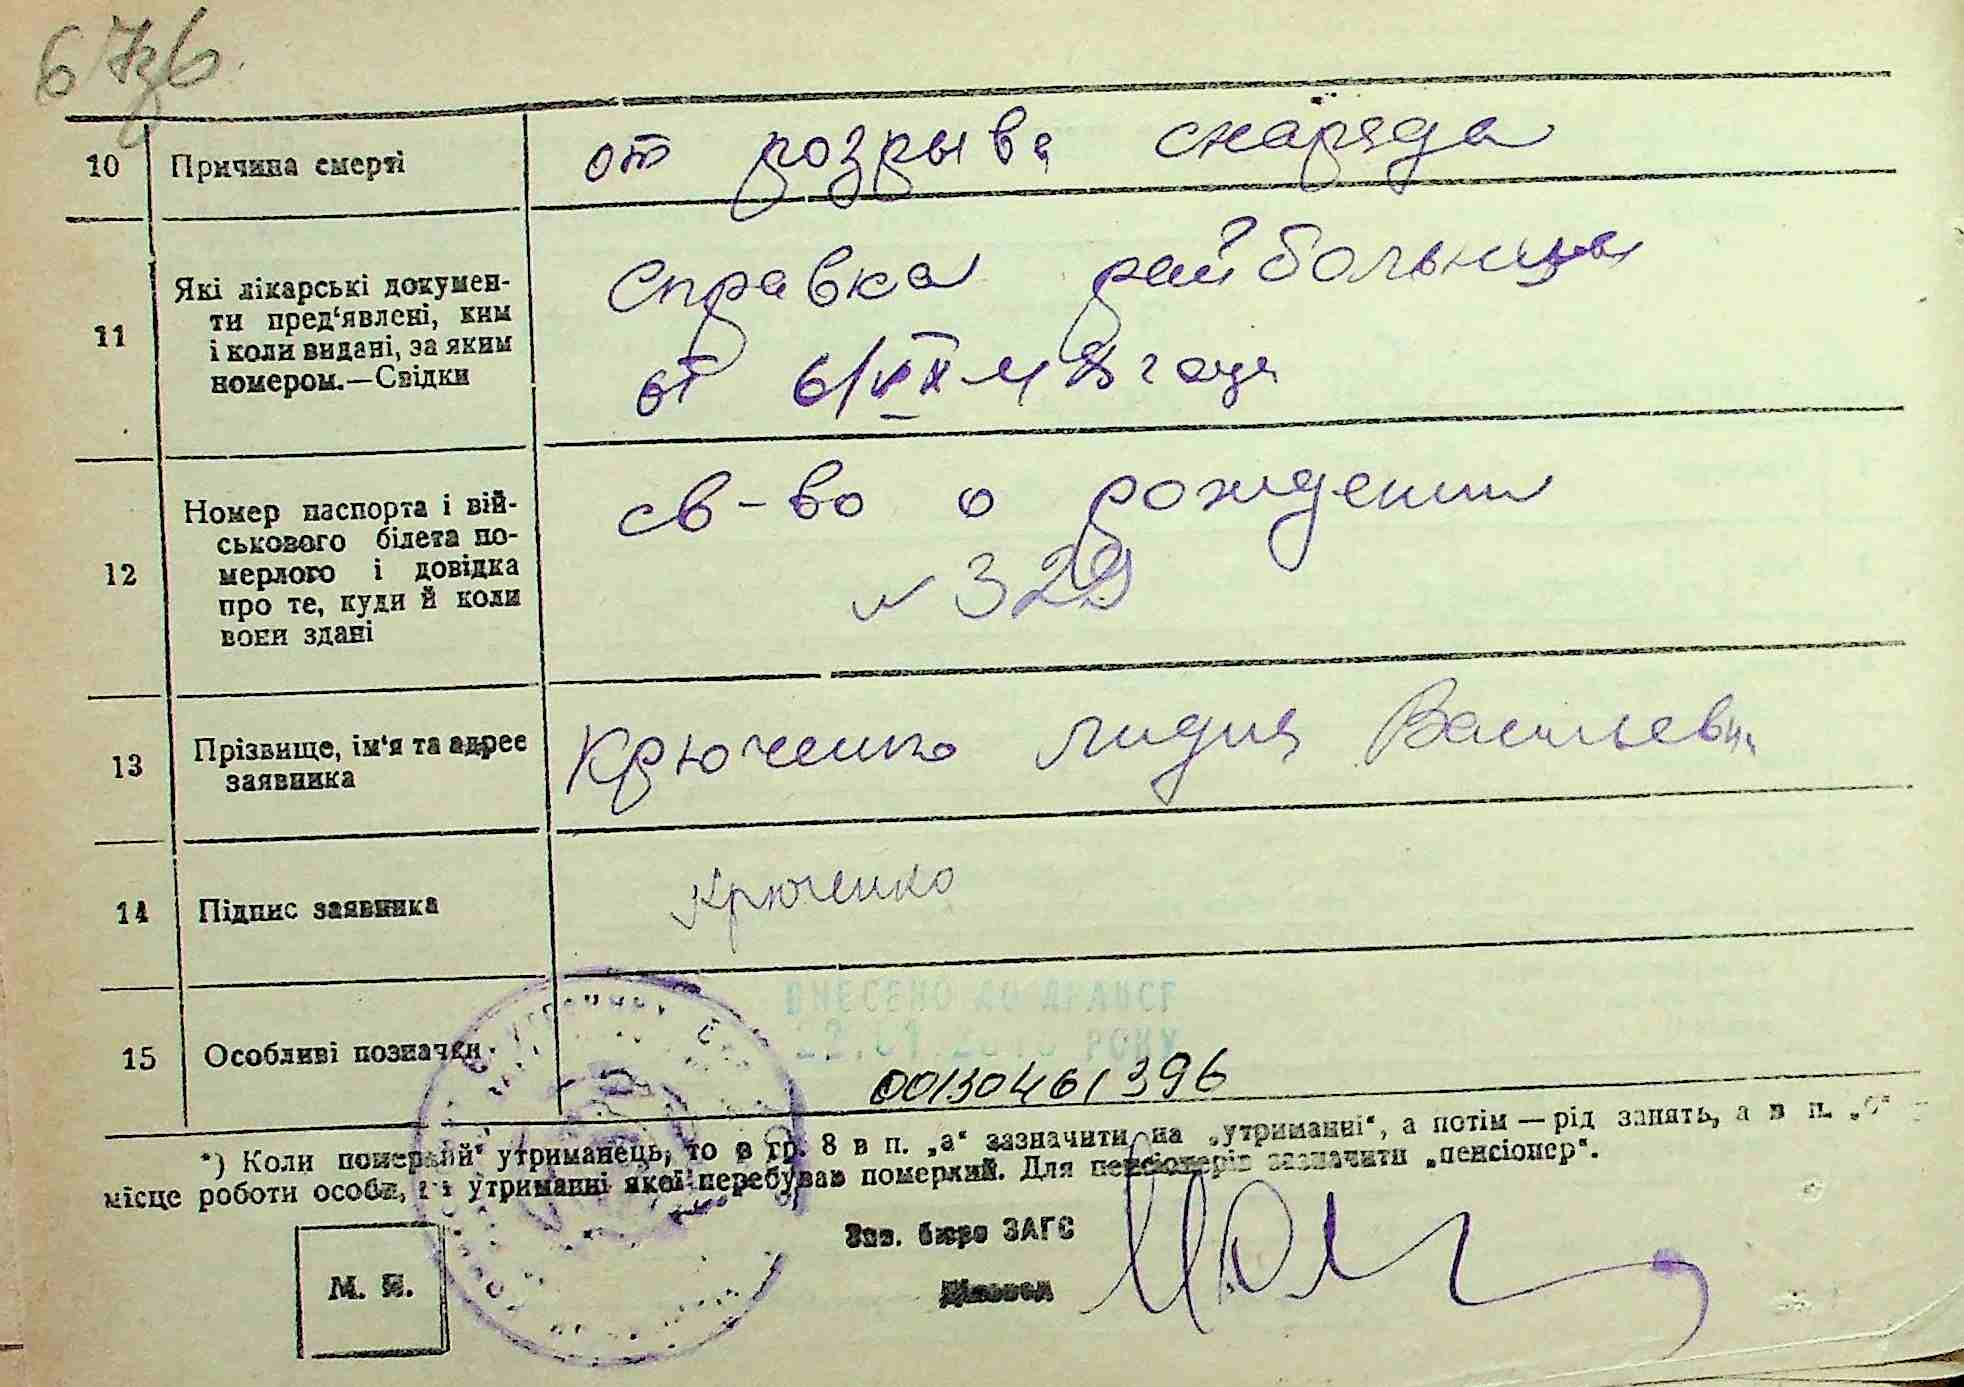 10 Причина смерті от розрыва снаряда
11 Які лікарські докумен-
ти пред‘явлені, ким
і коли видані, за яким
номером.—Свідки
Справка райбольницы
от
12 Номер паспорта і вій-
ськового білета по-
мерлого і довідка
про те, куди й коли
вони здані
св-во о рождении
№ 329
13 Прізвище, ім‘я та адрес
заявника
Крюченко Лидия Васильевн
14 Підпис заявника Крюченко
15 Особливі позначки
ВНЕСЕНО ДО ДРАЦСГ
РОКУ
00130461396
*) Коли померлий утриманець, то в гр. 8 в п. „а“ зазначити „на утриманні“, а потім — рід занять, а в п. „б“
місце роботи особи, на утриманні якої перебував померлий. Для пенсіонерів зазначити „пенсіонер“.
Зав. бюро ЗАГС
Діловод
М. П.